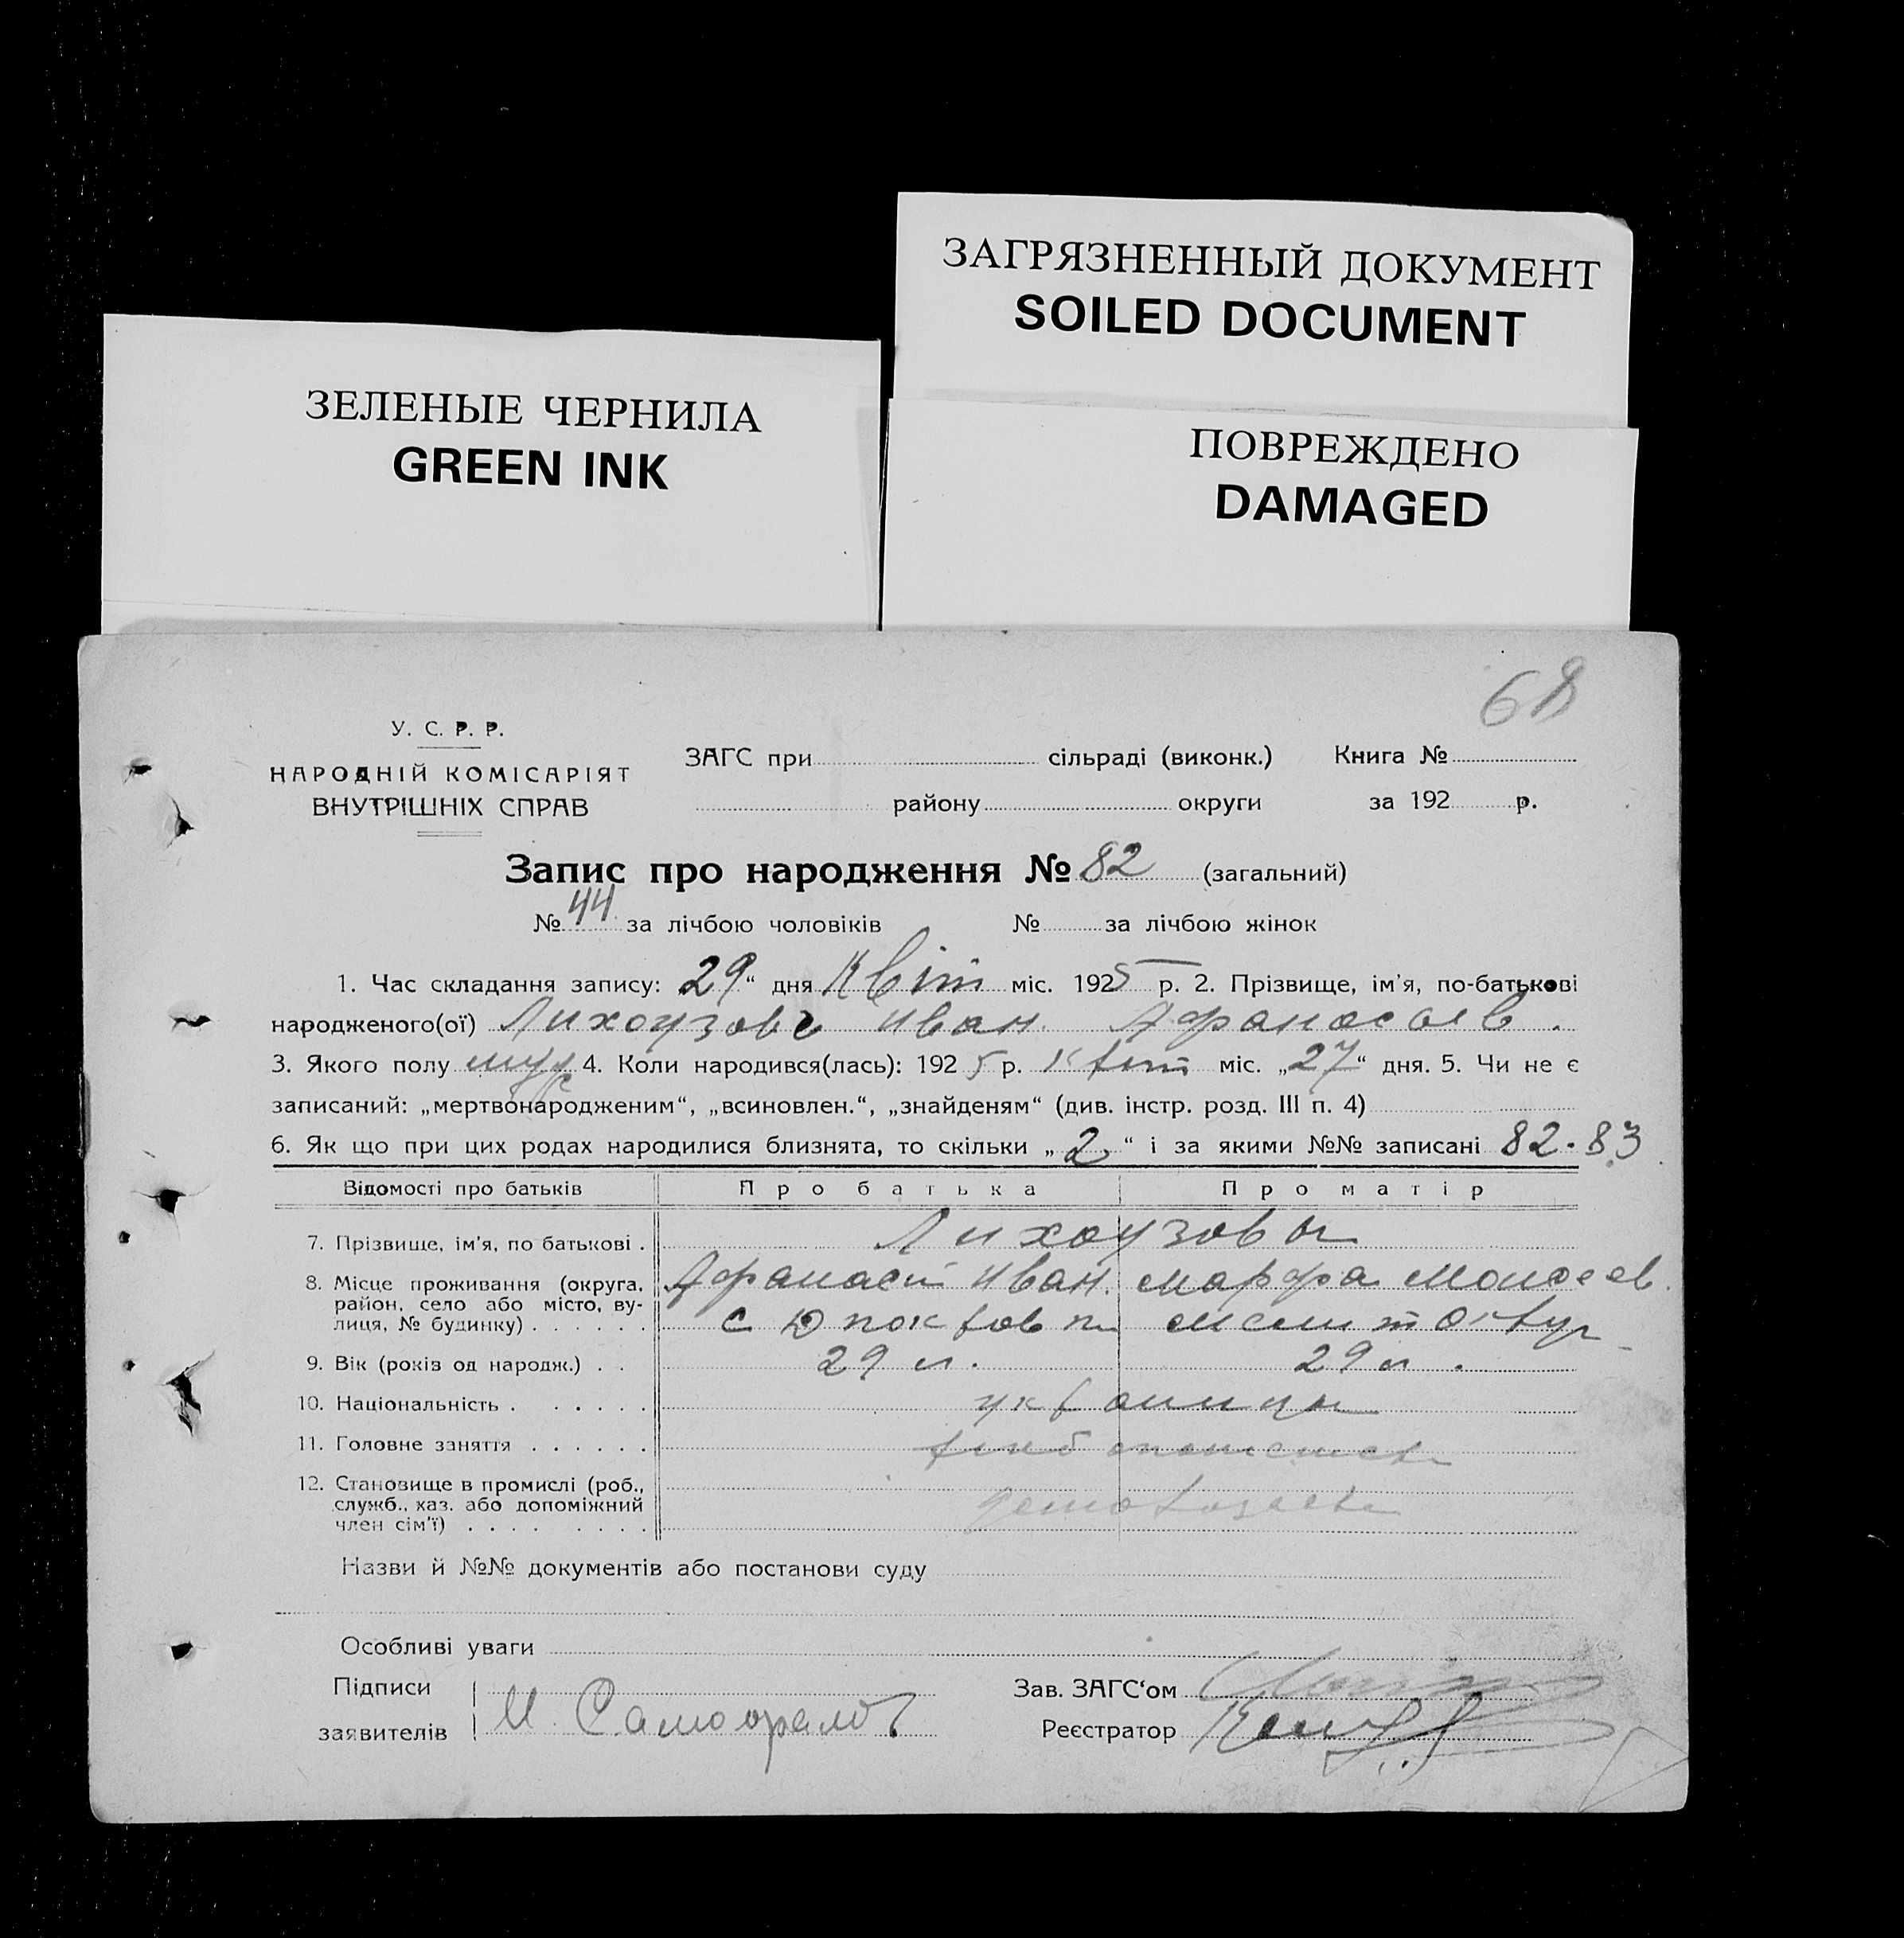 ЗАГРЯЗНЕННЫЙ ДОКУМЕНТ
SOILED DOCUMENT
ЗЕЛЕНЫЕ ЧЕРНИЛА
GREEN INK
ПОВРЕЖДЕНО
DAMAGED
68
У. С. Р. Р.
НАРОДНІЙ КОМІСАРІЯТ
ВНУТРІШНІХ СПРАВ
ЗАГС при сільраді (виконк.) Книга №
району округи за 192 р.
Запис про народження № 82 (загальний)
№ 44 за лічбою чоловіків № за лічбою жінок
1. Час складання запису: 29“ дня Квіт міс. 1925 р. 2. Прізвище, ім'я, по-батькові
народженого(ої) Лихоузов Иван Афанасьев.
3. Якого полу муж 4. Коли народився(лась): 1925 р. Квіт міс. „27“ дня. 5. Чи не є
записаний: „мертвонародженим“, „всиновлен.“, „знайденям“ (див. інстр. розд. III п. 4)
6. Як що при цих родах народилися близнята, то скільки „2“ і за якими №№ записані 82-83
Відомості про батьків Про батька Про матір
7. Прізвище, ім'я, по батькові . Лихоузовы
8. Місце проживання (округа, Афанасій Иван. Марфа Моисеев.
район, село або місто, ву-
лиця, № будинку) . . . . . . с
9. Вік (років од народж.) . . 29 л. 29 л.
10. Національність . . . . . . украинцы
11. Головне заняття . . . . . .
12. Становище в промислі (роб.,
служб., хаз. або допоміжний
член сім'ї) . . . . . . . .
Назви й №№ документів або постанови суду
Особливі уваги
Підписи Зав. ЗАГС‘ом
заявителів И. Реєстратор